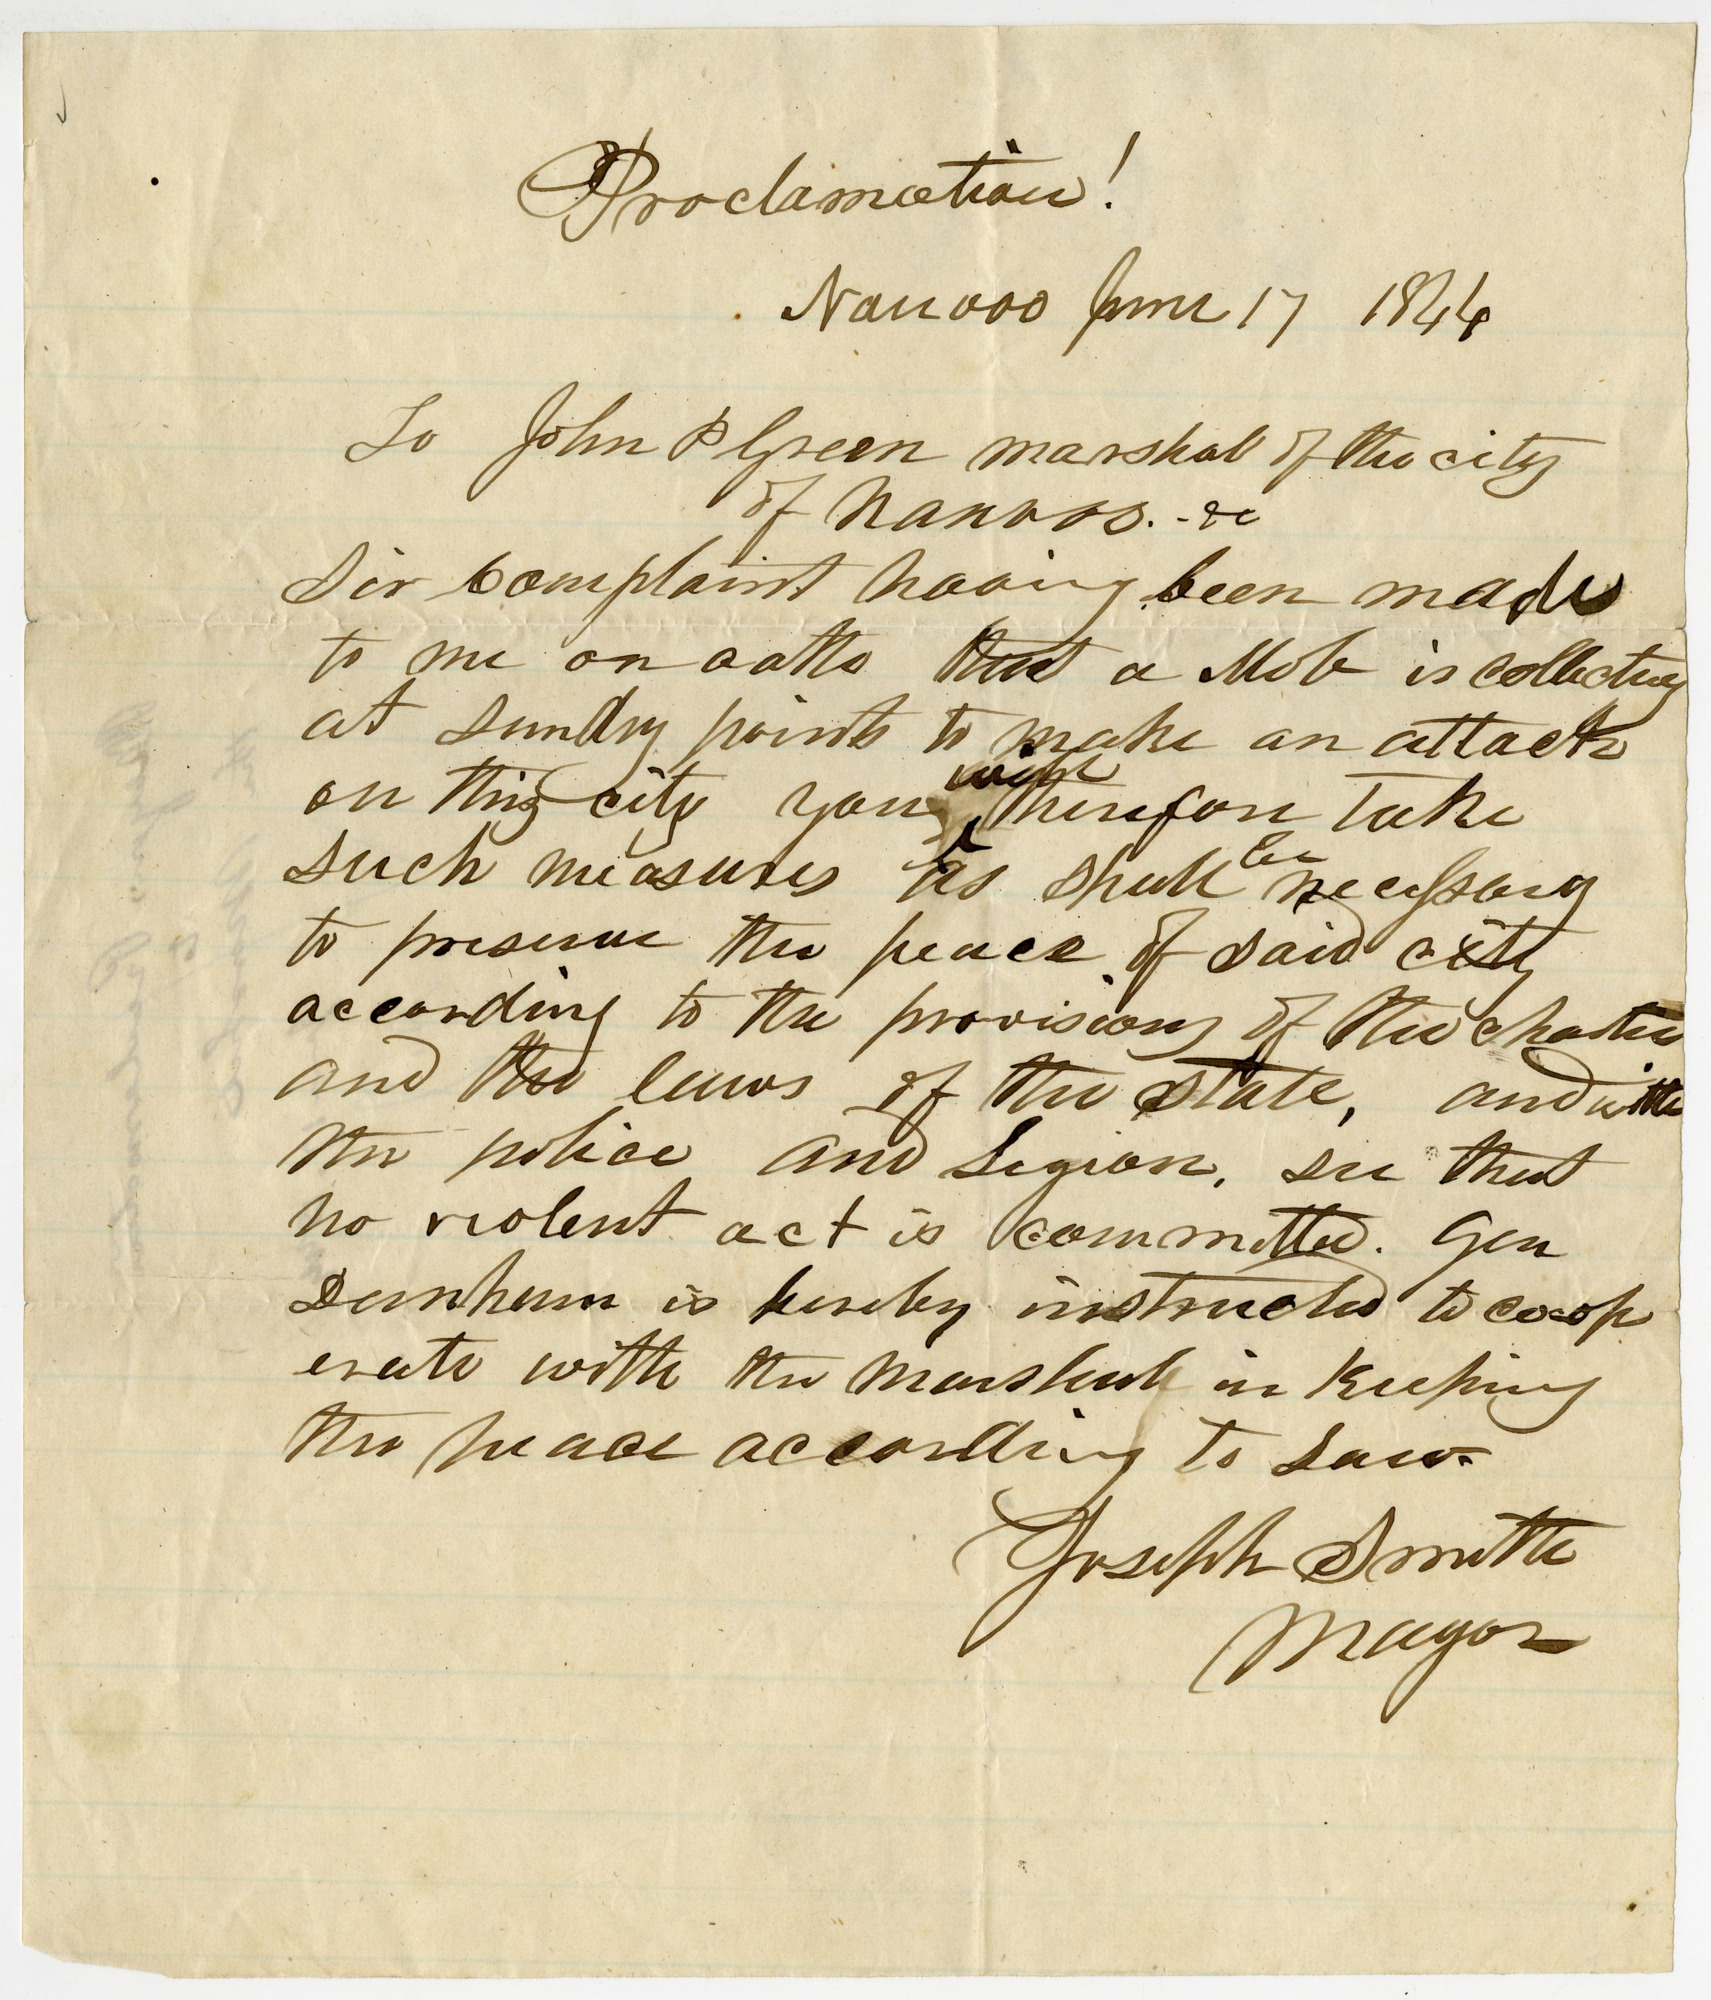 Proclamation!
Nauvoo June 17 1844
To John P Green marshal of the city
of Nauvoo. - &c
Sir Complaint having been made
to me on oath that a Mob is collecting
at sundry points to make an attack
on this city you will therefore take
such measures as shall be necessary
to preserve the peace of said city
according to the provisions of the charter
and the laws of the state, and with
the police and Legion, see that
no violent act is committed. Gen
Dunham is hereby instructed to co-op
erate with the Marshall in keeping
the peace according to Law-
Joseph Smith
Mayor